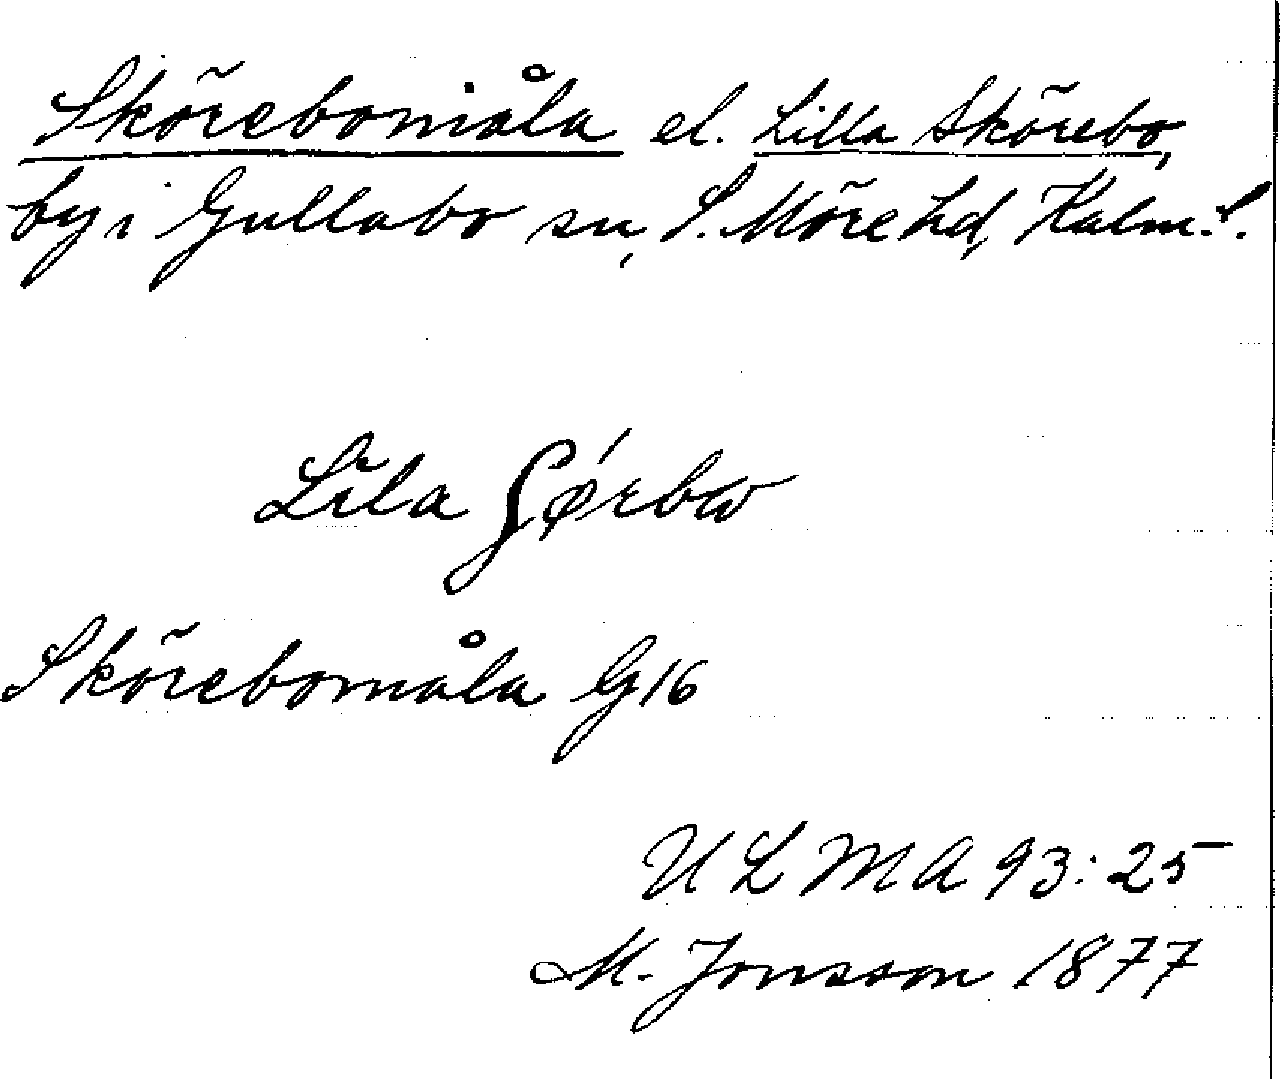 Skörebomåla el. Lilla Skörebo,
by i Gullabo sn, S. Möre hd, Kalm. l.
Lila ʃǿrbω
Skörebomåla G16
ULMA 93:25
M. Jonsson 1877